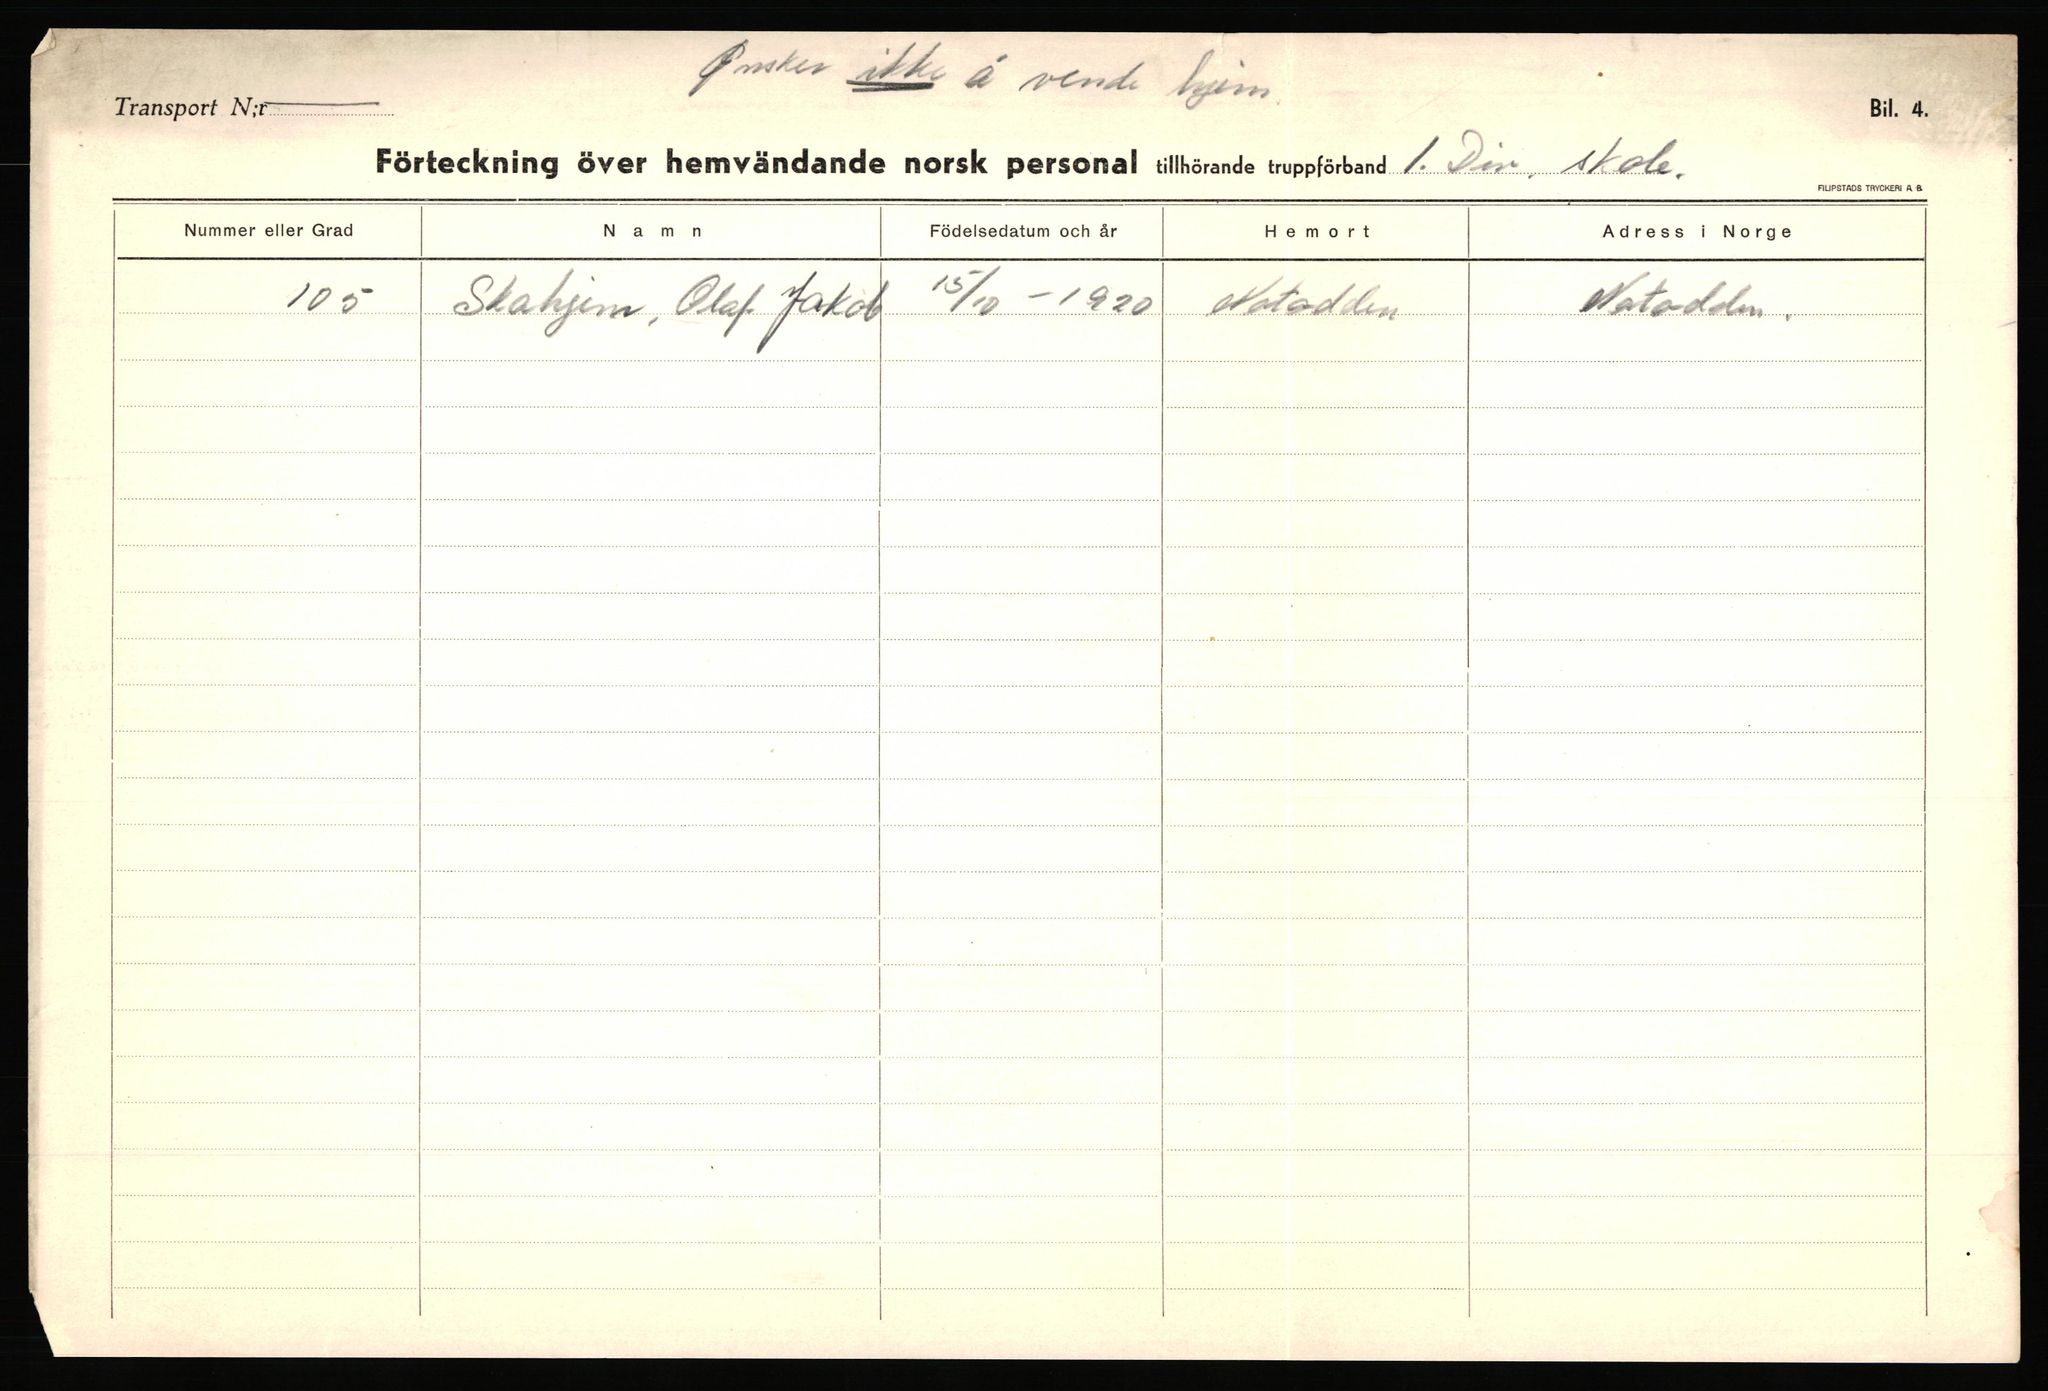 Ønsker ikke å vende hjem.
Transport N:r
Bil. 4.
Förteckning över hemvändande norsk personal tillhörande truppförband 1. Div. skole.
FILIPSTADS TRYCKERI A. B.
Nummer eller Grad Namn Födelsedatum och år Hemort Adress i Norge
105 Skahjem, Olaf Jakob 15/10 – 1920 Notodden Notodden.